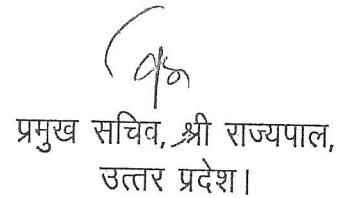 प्रमुख सचिव, श्री राज्यपाल,
उत्तर प्रदेश।